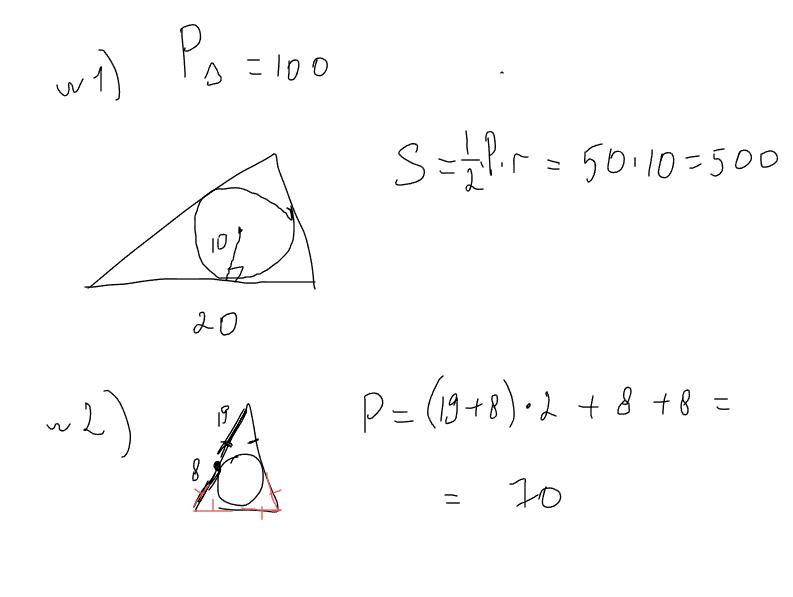 w1) P△ = 100
S = 1/2 · P · r = 50 · 10 = 500
10
20
w2) P = (19+8) · 2 + 8 + 8 =
19
8
= 70